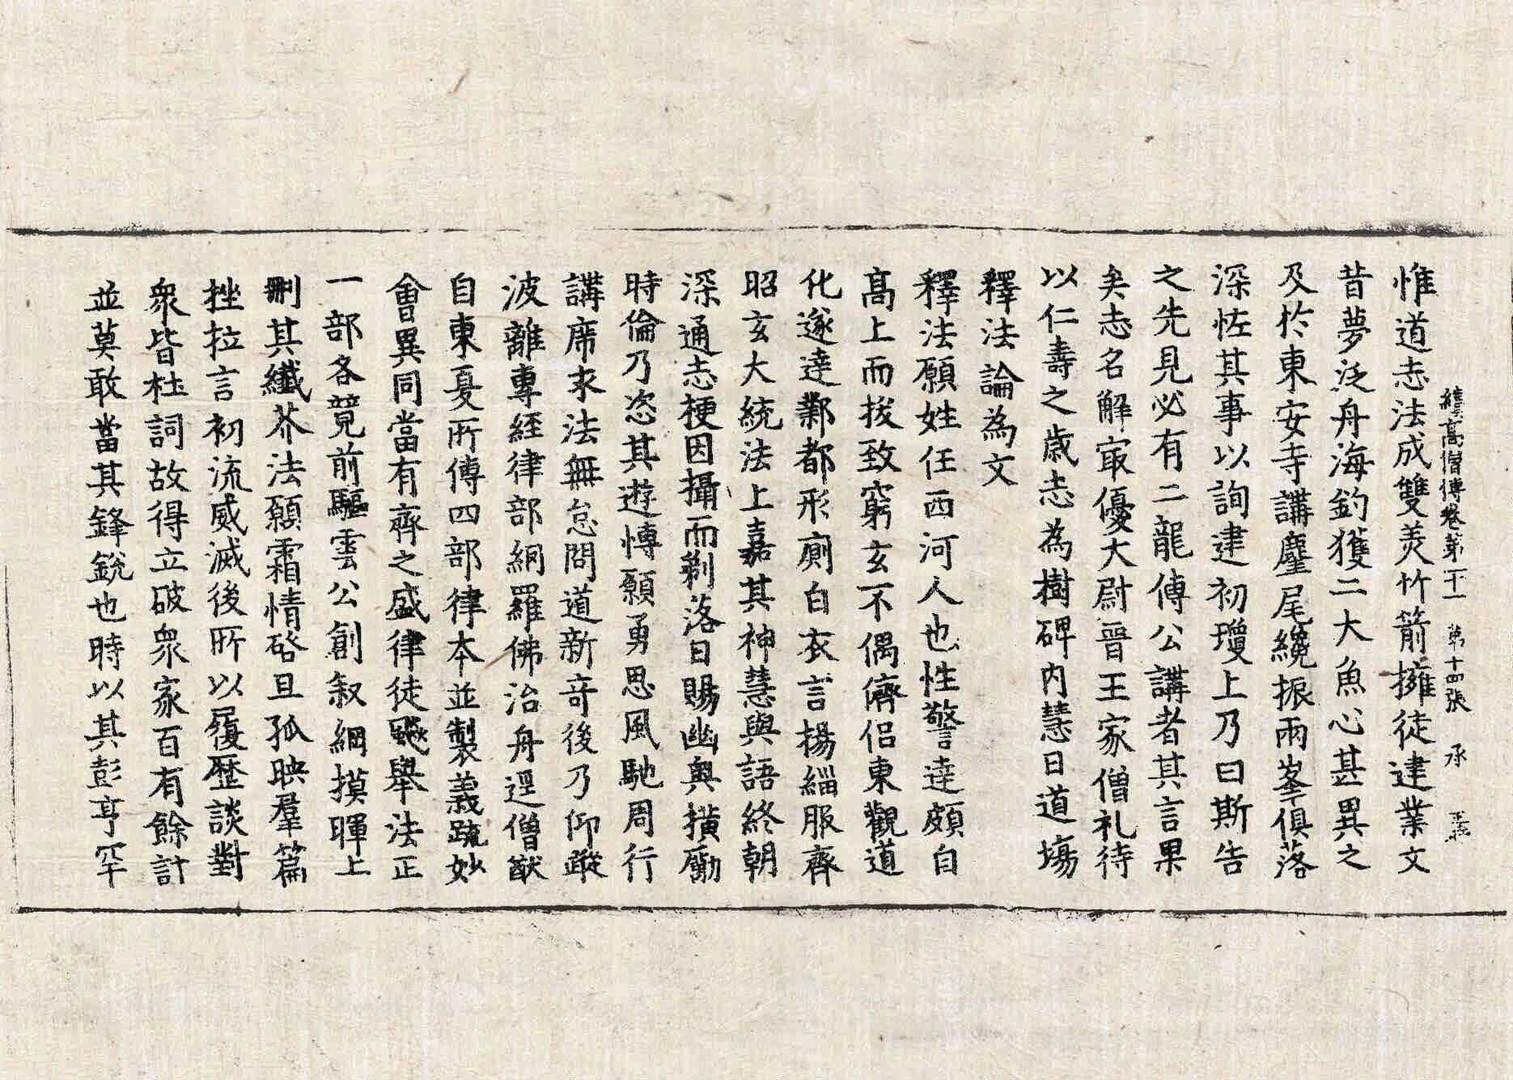 續高僧傳卷第二十一 第十四張 承
惟道志法成雙美竹箭擁徒建業文
昔夢泛舟海釣獲二大魚心甚異之
及於東安寺講麈尾纔振兩峯俱落
深恠其事以詢建初瓊上乃曰斯告
之先見必有二龍傳公講者其言果
矣志名解㝡優大尉晉王家僧礼待
以仁壽之歲志為樹碑内慧日道場
釋法論為文
釋法願姓任西河人也性警達頗自
高上而拔致窮玄不偶儕侣東觀道
化遂達鄴都形厠白衣言揚緇服齊
昭玄大統法上嘉其神慧與語終朝
深通志梗因攝而剃落日賜幽奥横勵
時倫乃恣其遊愽願勇思風馳周行
講席求法無怠問道新竒後乃仰蹤
波離專經律部網羅佛治舟逕僧猷
自東夏所傳四部律本並製義䟽妙
會異同當有齊之盛律徒飈舉法正
一部各竟前驅雲公創叙綱摸暉上
刪其纖芥法願霜情啓旦孤映羣篇
挫拉言初流威滅後所以履歷談對
衆皆杜詞故得立破衆家百有餘計
並莫敢當其鋒鋭也時以其彭亨罕